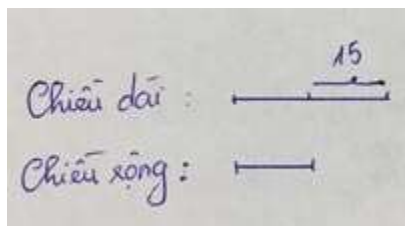 15
Chiều dài :
Chiều rộng :